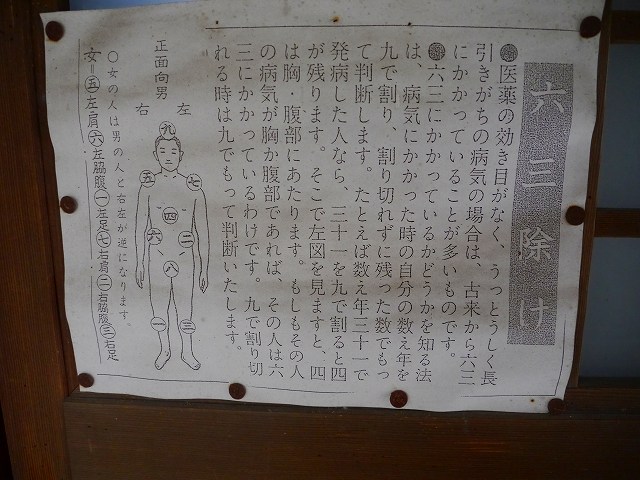 六三除け
●医薬の効き目がなく、うっとうしく長
引きがちの病気の場合は、古来から六三
にかかっていることが多いものです。
●六三にかかっているかどうかを知る法
は、病気にかかった時の自分の数え年を
九で割り、割り切れずに残った数でもっ
て判断します。たとえば数え年三十一で
発病した人なら、三十一を九で割ると四
が残ります。そこで左図を見ますと、四
は胸・腹部にあたります。もしもその人
の病気が胸か腹部であれば、その人は六
三にかかっているわけです。九で割り切
れる時は九でもって判断いたします。
正面向男
左
右
九
七
五
四
二
六
八
三
一
○女の人は男の人と右左が逆になります。
女ー五左肩六左脇腹一左足七右肩二右脇腹三右足